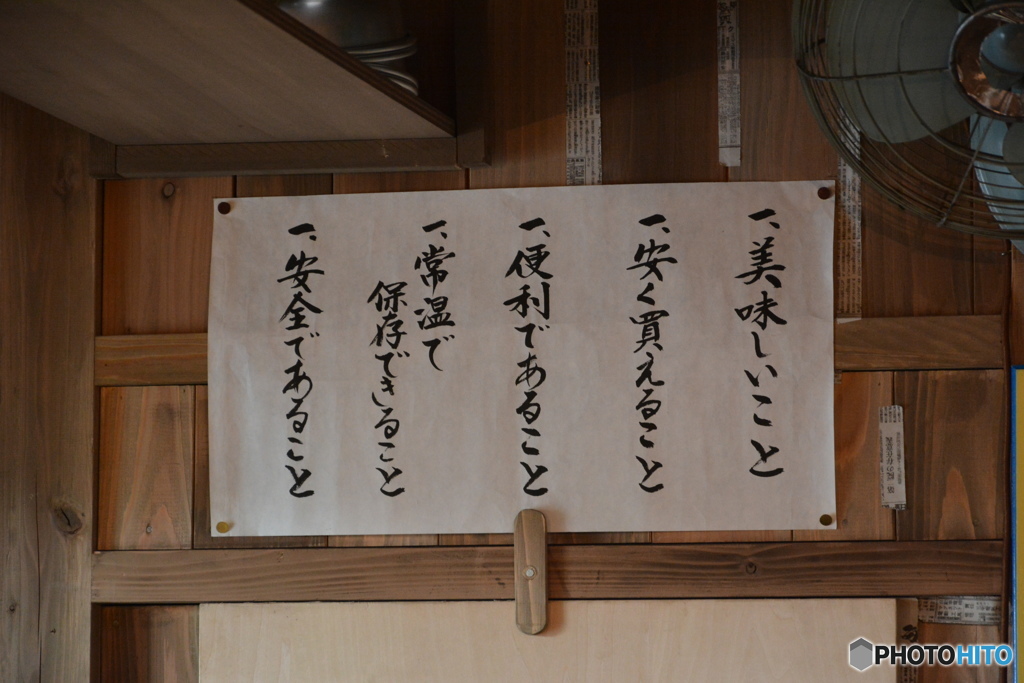 一、美味しいこと
一、安く買えること
一、便利であること
一、常温で
保存できること
一、安全であること
PHOTOHITO